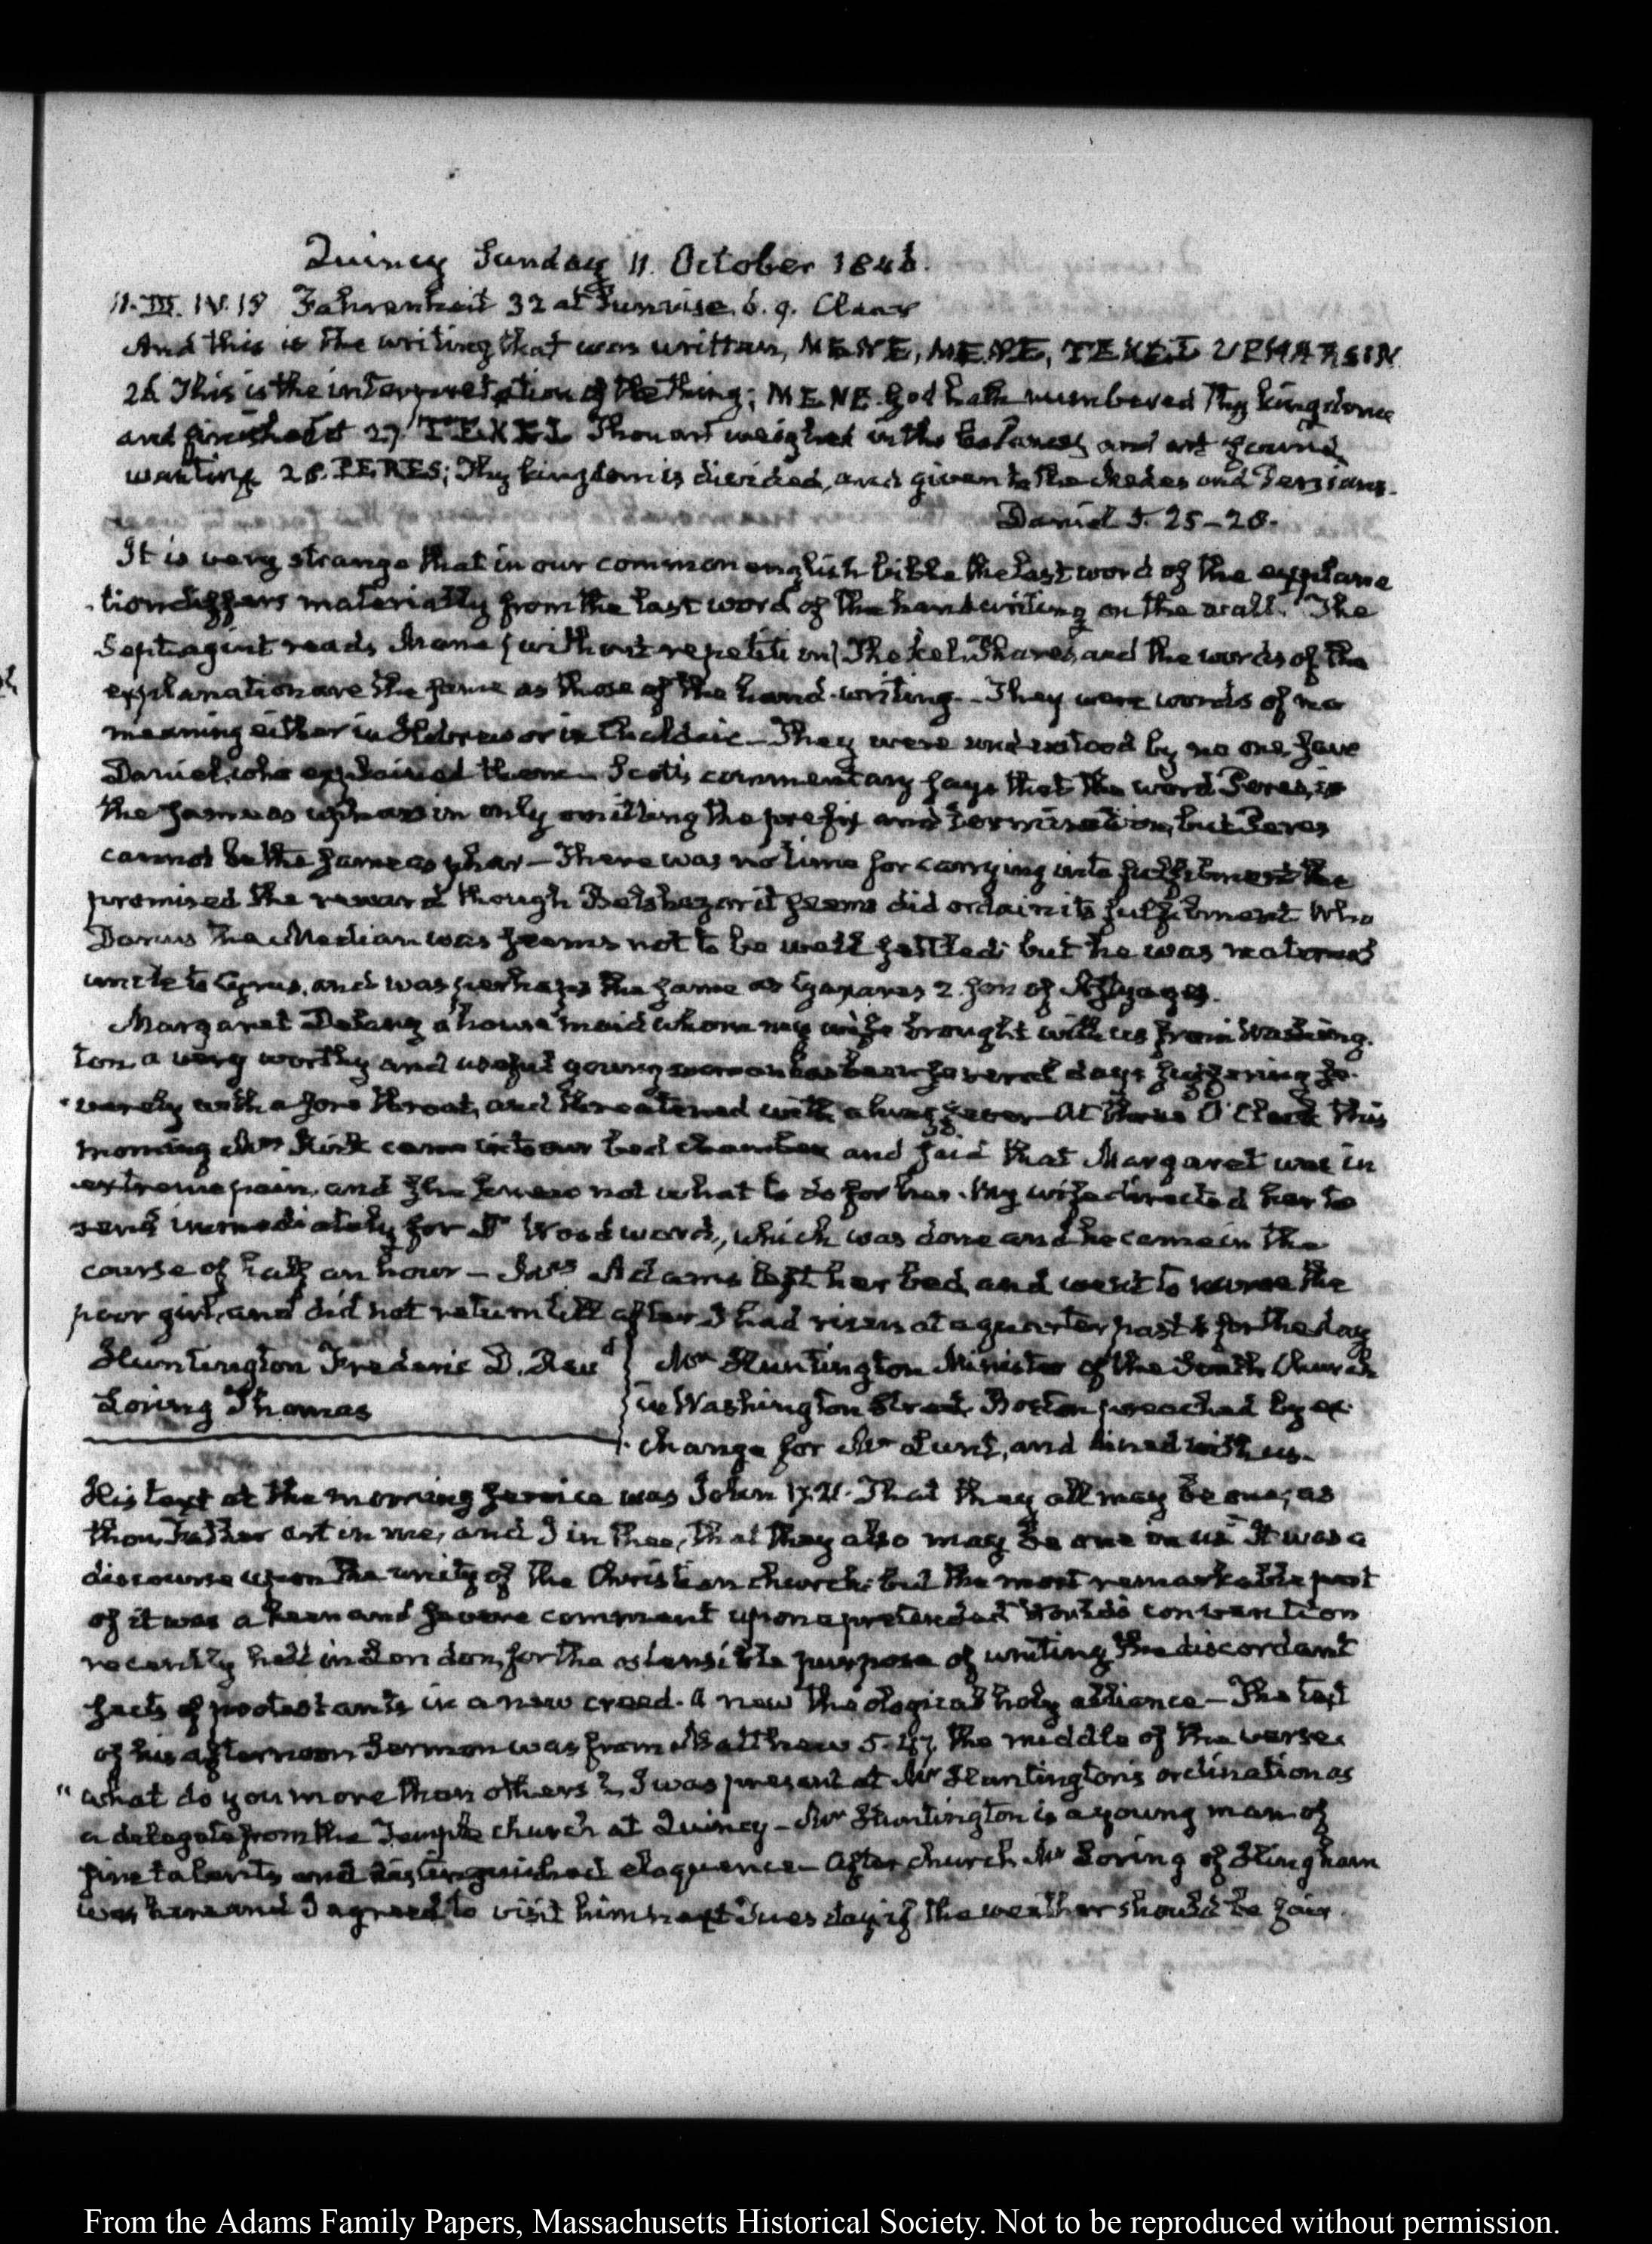 Quincy Sunday 11. October 1846.
11. III. IV.15 Fahrenheit 32 at Sunrise. 6. 9. Clear
And this is the writing that was written, MENE, MENE, TEKEL UPHARSIN.
26. This is the interpretation of the thing; MENE. God hath numbered thy kingdom
and finished it 27. TEKEL Thou art weighed in the balances and art found
wanting 28. PERES; Thy kingdom is divided, and given to the Medes and Persians.
Daniel 5. 25–28.
It is very strange that in our common english bible the last word of the explana
tion differs materially from the last word of the handwriting on the wall. The
Septuagint reads Mane (without repetition) Thekel Phares, and the words of the
explanation are the same as those of the hand-writing – They were words of no
meaning either in Hebrew or in Chaldaic – They were understood by no one, save
Daniel, who explained them – Scott's commentary says that the word Peres, is
the same as upharsin only omitting the prefix and termination, but Peres
cannot be the same as phar – There was no time for carrying into fulfilment the
promised the reward though Belshazar it seems did ordain its fulfilment. Who
Darius the Median was seems not to be well settled; but he was maternal
uncle to Cyrus, and was perhaps the same as Cyaxares 2. son of Astyages.
Margaret Delany a house maid whom my wife brought with us from Washing.
ton a very worthy and useful young woman has been several days suffering se.
verely with a sore throat, and threatened with a lung fever – At three O'Clock this
morning Mrs Kirk came into our bed chamber and said that Margaret was in
extreme pain, and she knew not what to do for her. My wife directed her to
send immediately for Dr Woodward, which was done and he came in the
course of half an hour – Mrs Adams left her bed, and went to nurse the
poor girl, and did not return till after I had risen at a quarter past 4 for the day
Huntington Frederic D. Revd } Mr Huntington Minister of the South Church
Loring Thomas } in Washington Street Boston preached by ex
change for Mr Lunt, and dined with us.
His text at the morning service was John 17.21. That they all may be one; as
thou Father art in me, and I in thee, that they also may be one in us It was a
discourse upon the unity of the Christian church: but the most remarkable part
of it was a keen and severe comment upon a pretended World's convention
recently held in London, for the ostensible purpose of uniting the discordant
sects of protestants in a new creed. A new theological holy alliance – The text
of his afternoon Sermon was from Matthew 5. 47. the middle of the verse.
"what do you more than others? I was present at Mr Huntington's ordination as
a delegate from the Temple church at Quincy – Mr Huntington is a young man of
fine talents and distinguished eloquence – After church Mr Loring of Hingham
was here and I agreed to visit him next Tuesday if the weather should be fair.
From the Adams Family Papers, Massachusetts Historical Society. Not to be reproduced without permission.